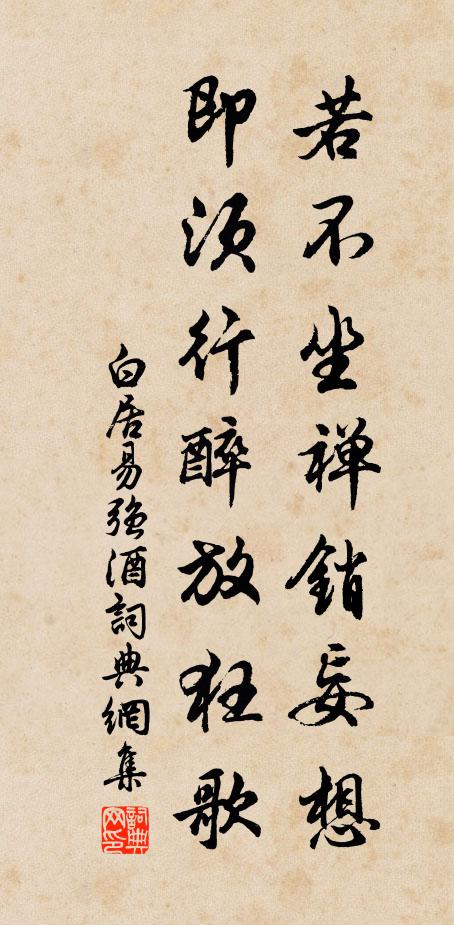 若不坐禅銷妄想
即须行醉放狂歌
白居易强酒詞典網集
詞典网印